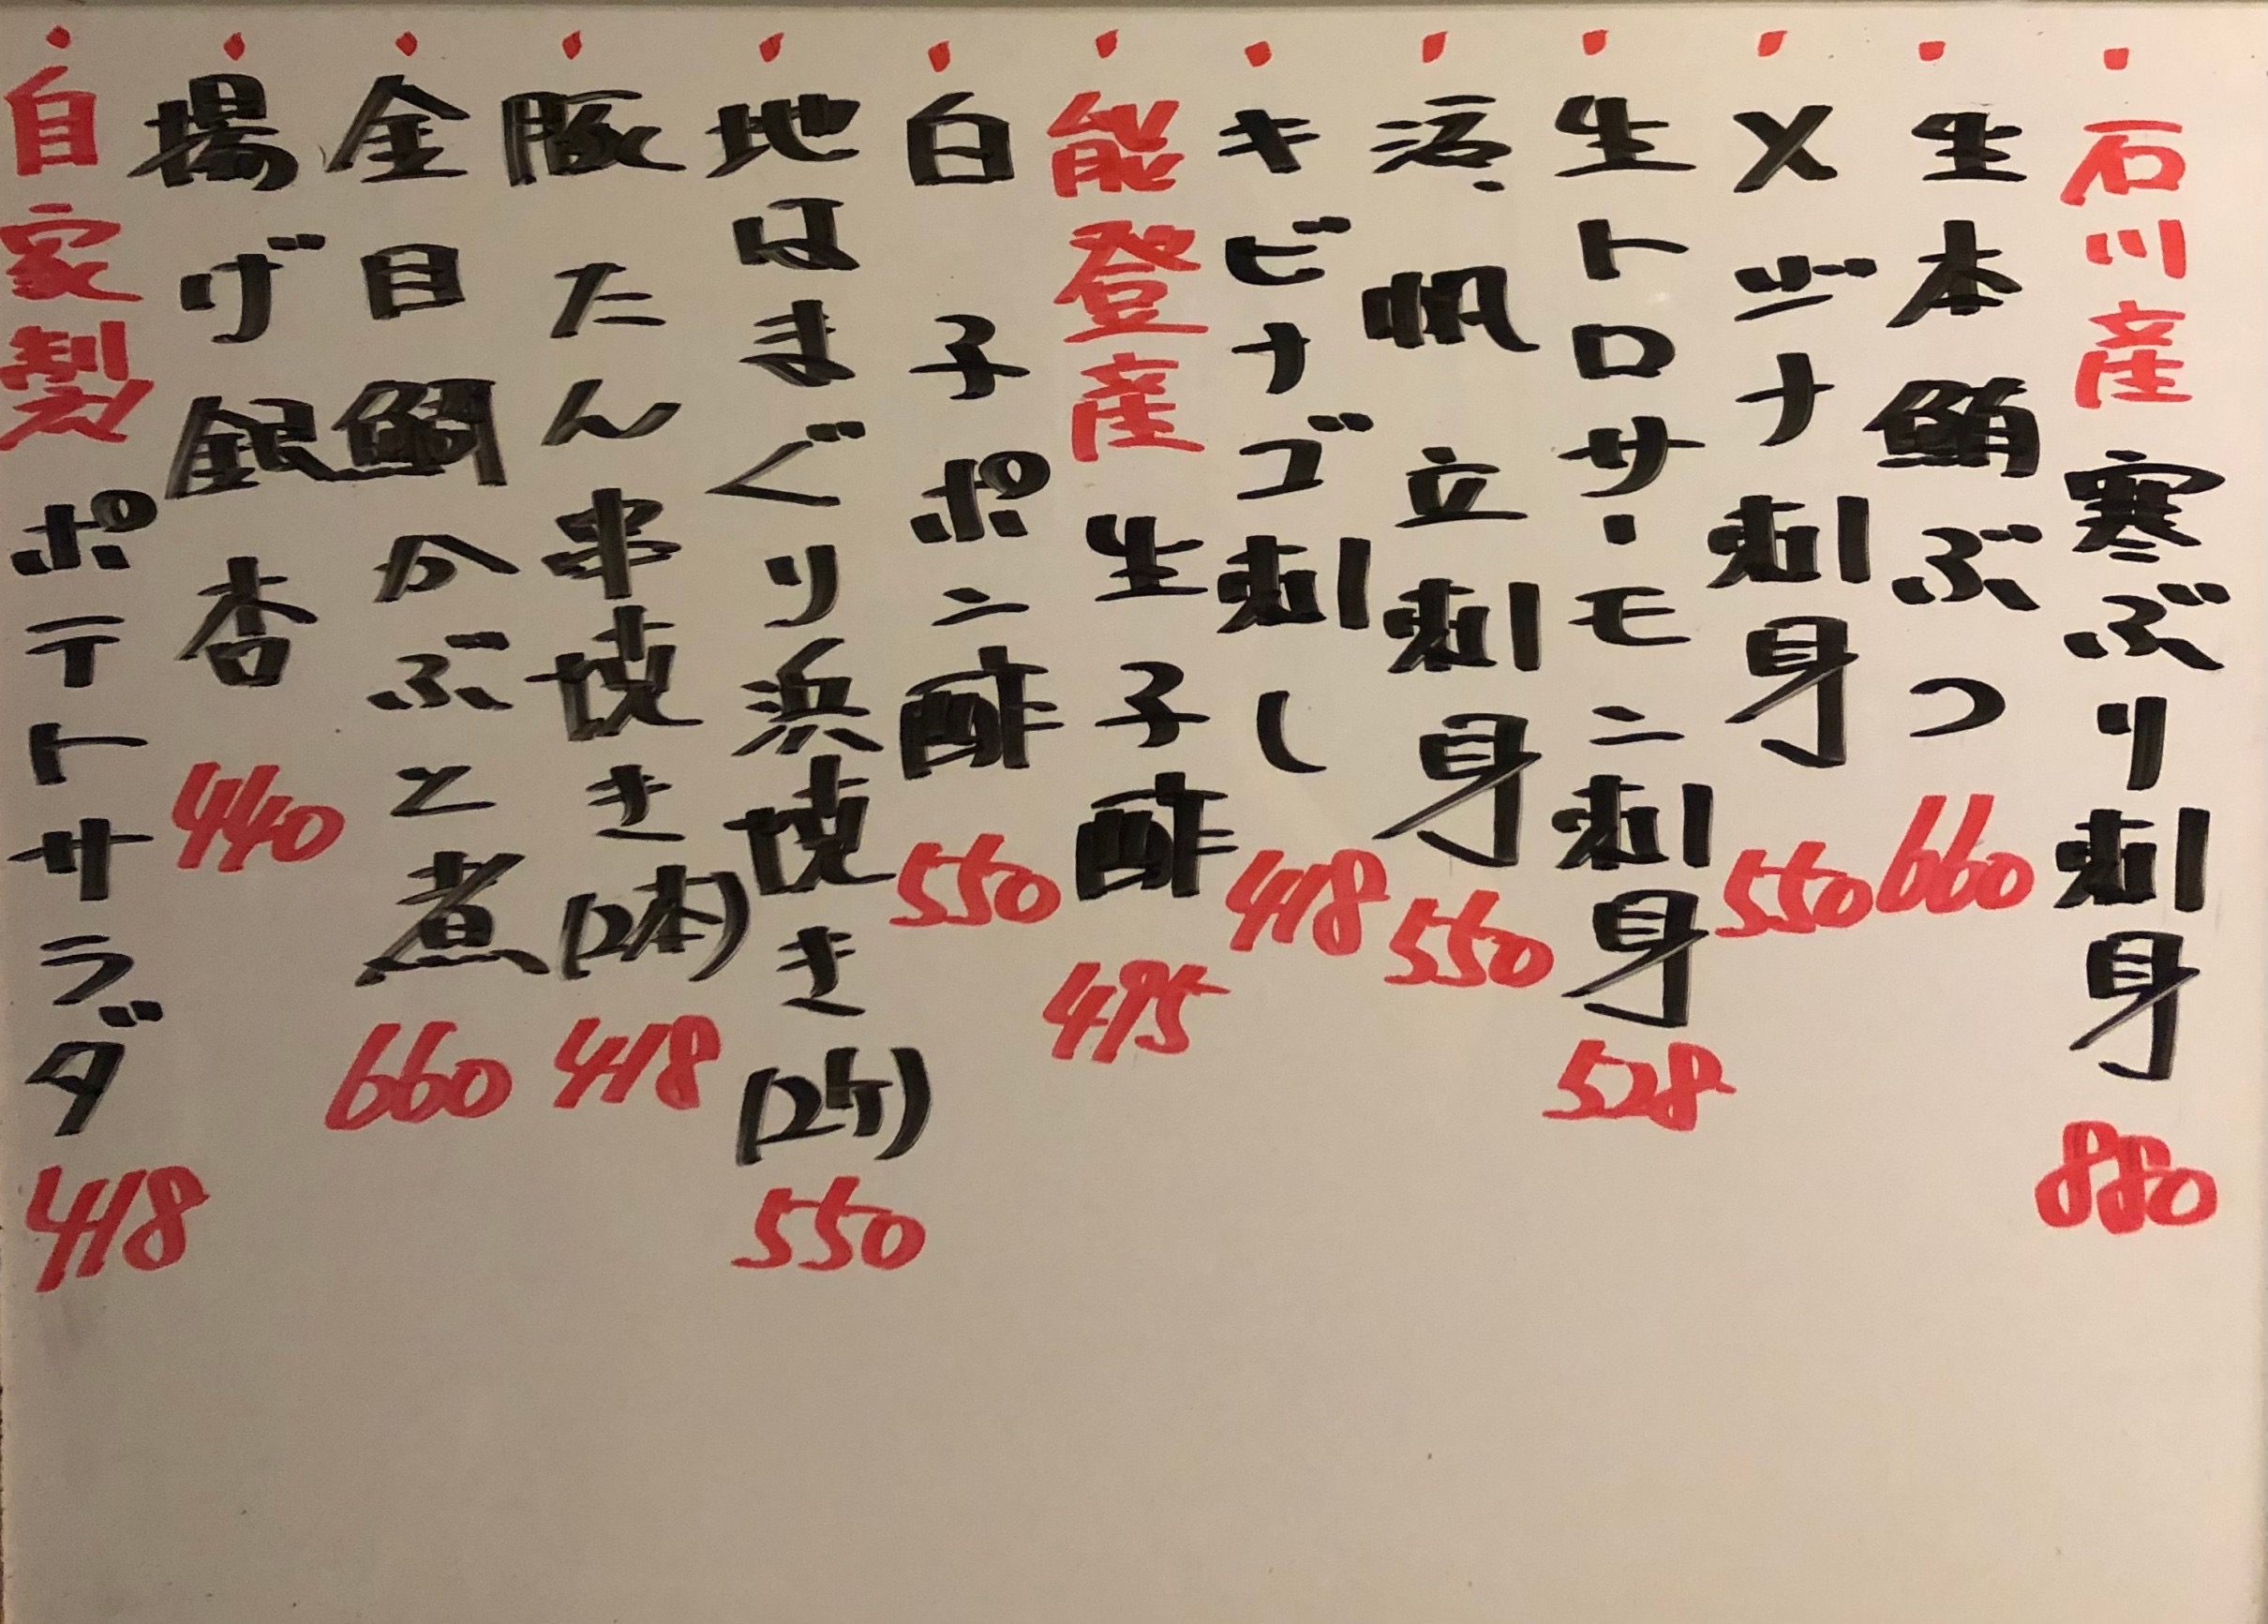 ・石川産寒ぶり刺身 880
・生本鮪ぶつ 660
・メジナ刺身 550
・生トロサーモン刺身 528
・活〆帆立刺身 550
・キビナゴ刺し 418
・能登産生子酢 495
・白子ポン酢 550
・地はまぐり浜焼き(2ケ) 550
・豚たん串焼き(2本) 418
・金目鯛かぶと煮 660
・揚げ銀杏 440
・自家製ポテトサラダ 418